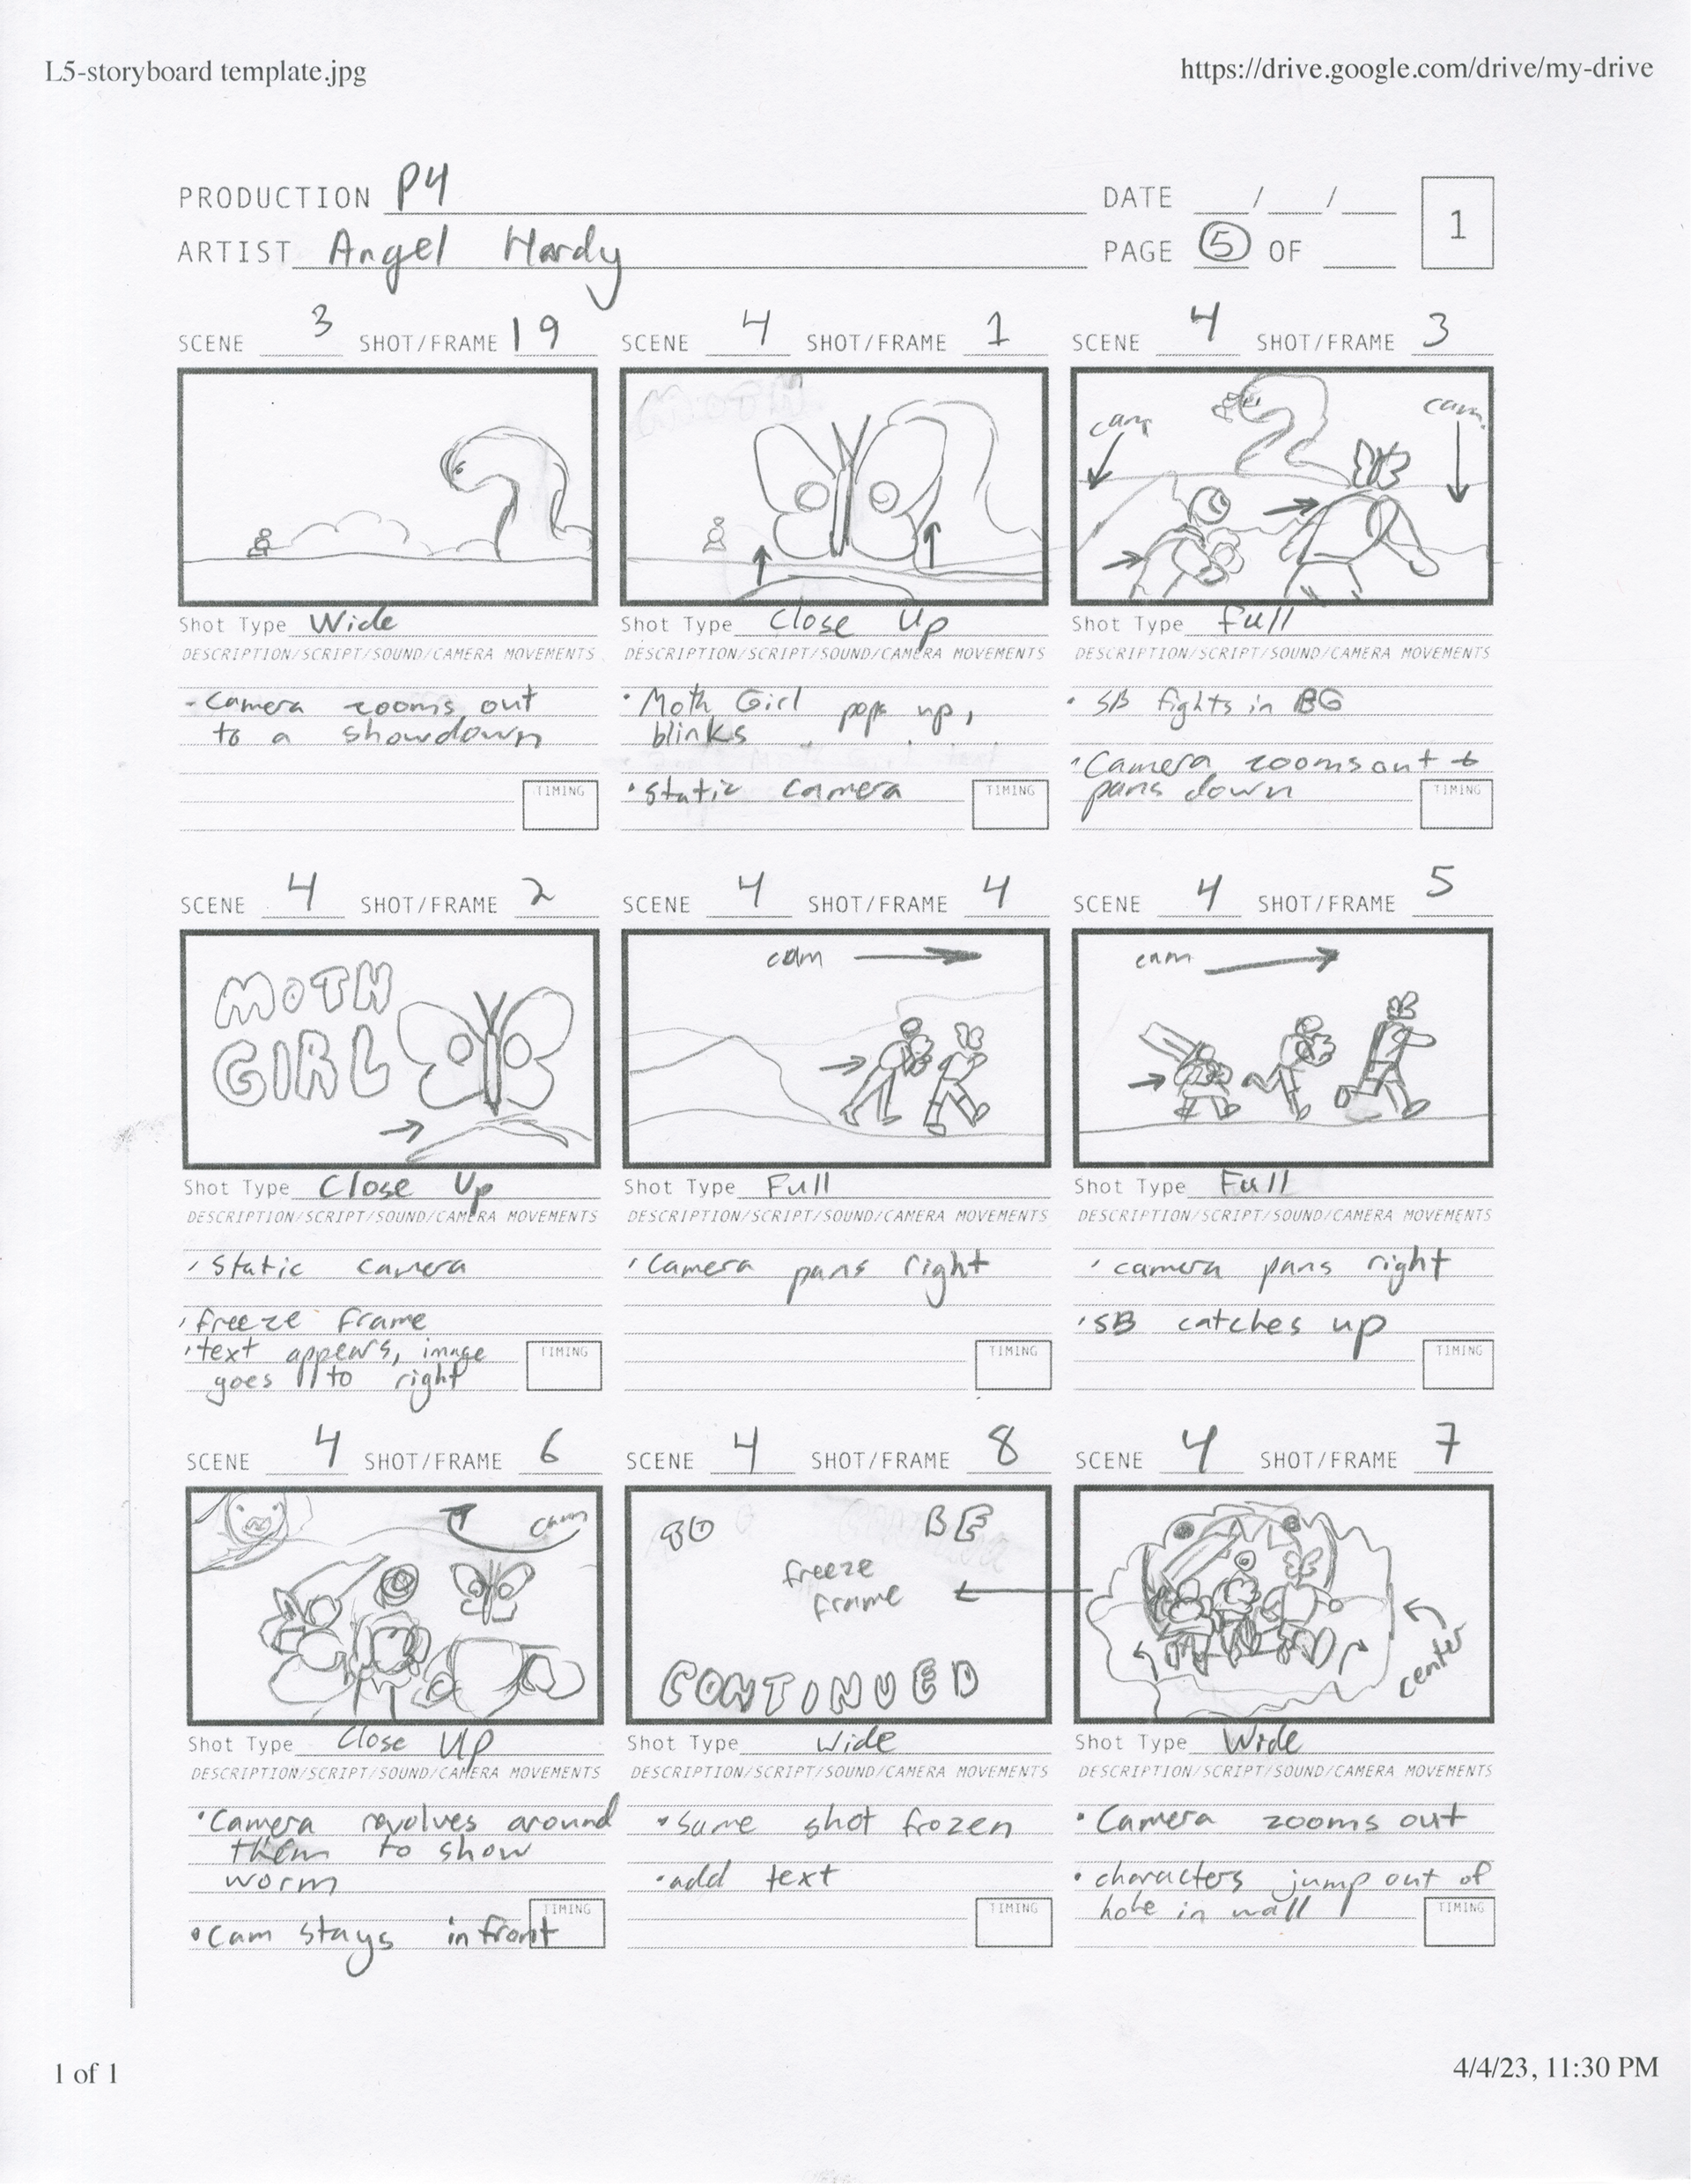 L5-storyboard template.jpg
https://drive.google.com/drive/my-drive
PRODUCTION P4
DATE __/__/__
1
ARTIST Angel Hardy
PAGE 5 OF
SCENE 3 SHOT/FRAME 19
SCENE 4 SHOT/FRAME 1
SCENE 4 SHOT/FRAME 3
cam
cam
Shot Type Wide
Shot Type Close Up
Shot Type Full
DESCRIPTION/SCRIPT/SOUND/CAMERA MOVEMENTS
DESCRIPTION/SCRIPT/SOUND/CAMERA MOVEMENTS
DESCRIPTION/SCRIPT/SOUND/CAMERA MOVEMENTS
- Camera zooms out
to a showdown
TIMING
• Moth Girl pops up,
blinks
• static camera
TIMING
• SB fights in BG
• Camera zooms out +
pans down
TIMING
SCENE 4 SHOT/FRAME 2
SCENE 4 SHOT/FRAME 4
SCENE 4 SHOT/FRAME 5
MOTH
GIRL
cam
cam
Shot Type Close Up
Shot Type Full
Shot Type Full
DESCRIPTION/SCRIPT/SOUND/CAMERA MOVEMENTS
DESCRIPTION/SCRIPT/SOUND/CAMERA MOVEMENTS
DESCRIPTION/SCRIPT/SOUND/CAMERA MOVEMENTS
• Static camera
• freeze frame
• text appears, image
goes to right
TIMING
• Camera pans right
TIMING
• camera pans right
• SB catches up
TIMING
SCENE 4 SHOT/FRAME 6
SCENE 4 SHOT/FRAME 8
SCENE 4 SHOT/FRAME 7
cam
TO BE
freeze
frame
CONTINUED
center
Shot Type Close Up
Shot Type Wide
Shot Type Wide
DESCRIPTION/SCRIPT/SOUND/CAMERA MOVEMENTS
DESCRIPTION/SCRIPT/SOUND/CAMERA MOVEMENTS
DESCRIPTION/SCRIPT/SOUND/CAMERA MOVEMENTS
• Camera revolves around
them to show
worm
• Cam stays in front
TIMING
• Same shot frozen
• add text
TIMING
• Camera zooms out
• characters jump out of
hole in wall
TIMING
1 of 1
4/4/23, 11:30 PM